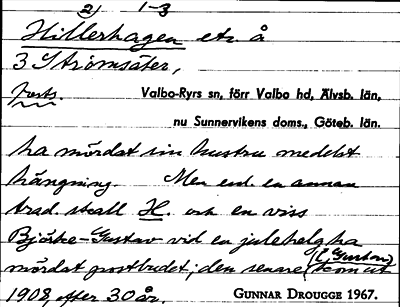 2) 1-3
Hillerhagen etc. å
3 Strömsäter,
forts. Valbo-Ryrs sn, förr Valbo hd, Älvsb. län,
nu Sunnervikens doms., Göteb. län.
ha mördat sin hustru medelst
hängning. Men enl. en annan
trad. skall H. och en viss
Björke-Gustav vid en julehelg ha
mördat postbudet; den senare (Gustav) kom ut
1908 efter 30 år. GUNNAR DROUGGE 1967.